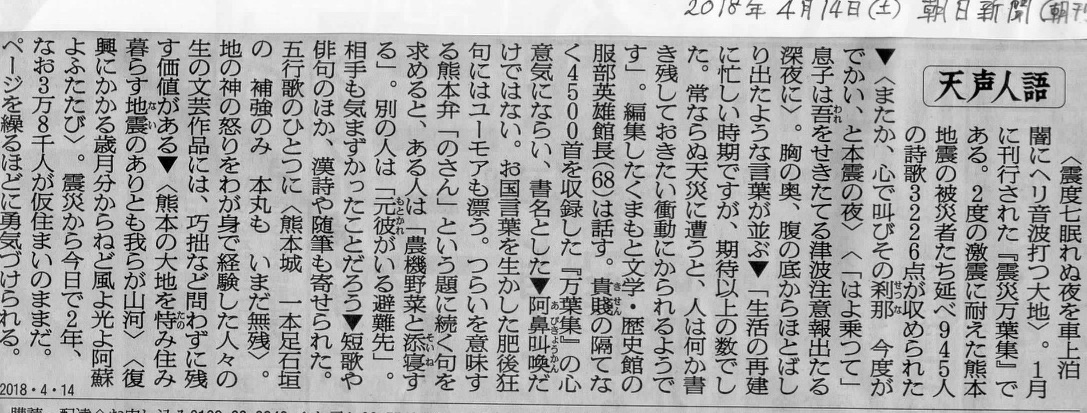 2018年4月14日(土) 朝日新聞(朝刊
天声人語
〈震度七眠れぬ夜を車上泊
闇にヘリ音波打つ大地〉。1月
に刊行された『震災万葉集』で
ある。2度の激震に耐えた熊本
地震の被災者たち延べ945人
の詩歌3226点が収められた
▼〈またか、心で叫びその刹那　今度が
でかい、と本震の夜〉〈「はよ乗つて」
息子は吾をせきたてる津波注意報出たる
深夜に〉。胸の奥、腹の底からほとばし
り出たような言葉が並ぶ▼「生活の再建
に忙しい時期ですが、期待以上の数でし
た。常ならぬ天災に遭うと、人は何か書
き残しておきたい衝動にかられるようで
す」。編集したくまもと文学・歴史館の
服部英雄館長(68)は話す。貴賤の隔てな
く4500首を収録した『万葉集』の心
意気にならい、書名とした▼阿鼻叫喚だ
けではない。お国言葉を生かした肥後狂
句にはユーモアも漂う。つらいを意味す
る熊本弁「のさん」という題に続く句を
求めると、ある人は「農機野菜と添寝す
る」。別の人は「元彼がいる避難先」。
相手も気まずかったことだろう▼短歌や
俳句のほか、漢詩や随筆も寄せられた。
五行歌のひとつに〈熊本城　一本足石垣
の　補強のみ　本丸も　いまだ無残〉。
地の神の怒りをわが身で経験した人々の
生の文芸作品には、巧拙など問わずに残
す価値がある▼〈熊本の大地を恃み住み
暮らす地震のありとも我らが山河〉〈復
興にかかる歳月分からねど風よ光よ阿蘇
よふたたび〉。震災から今日で2年、
なお3万8千人が仮住まいのままだ。
ページを繰るほどに勇気づけられる。
2018・4・14